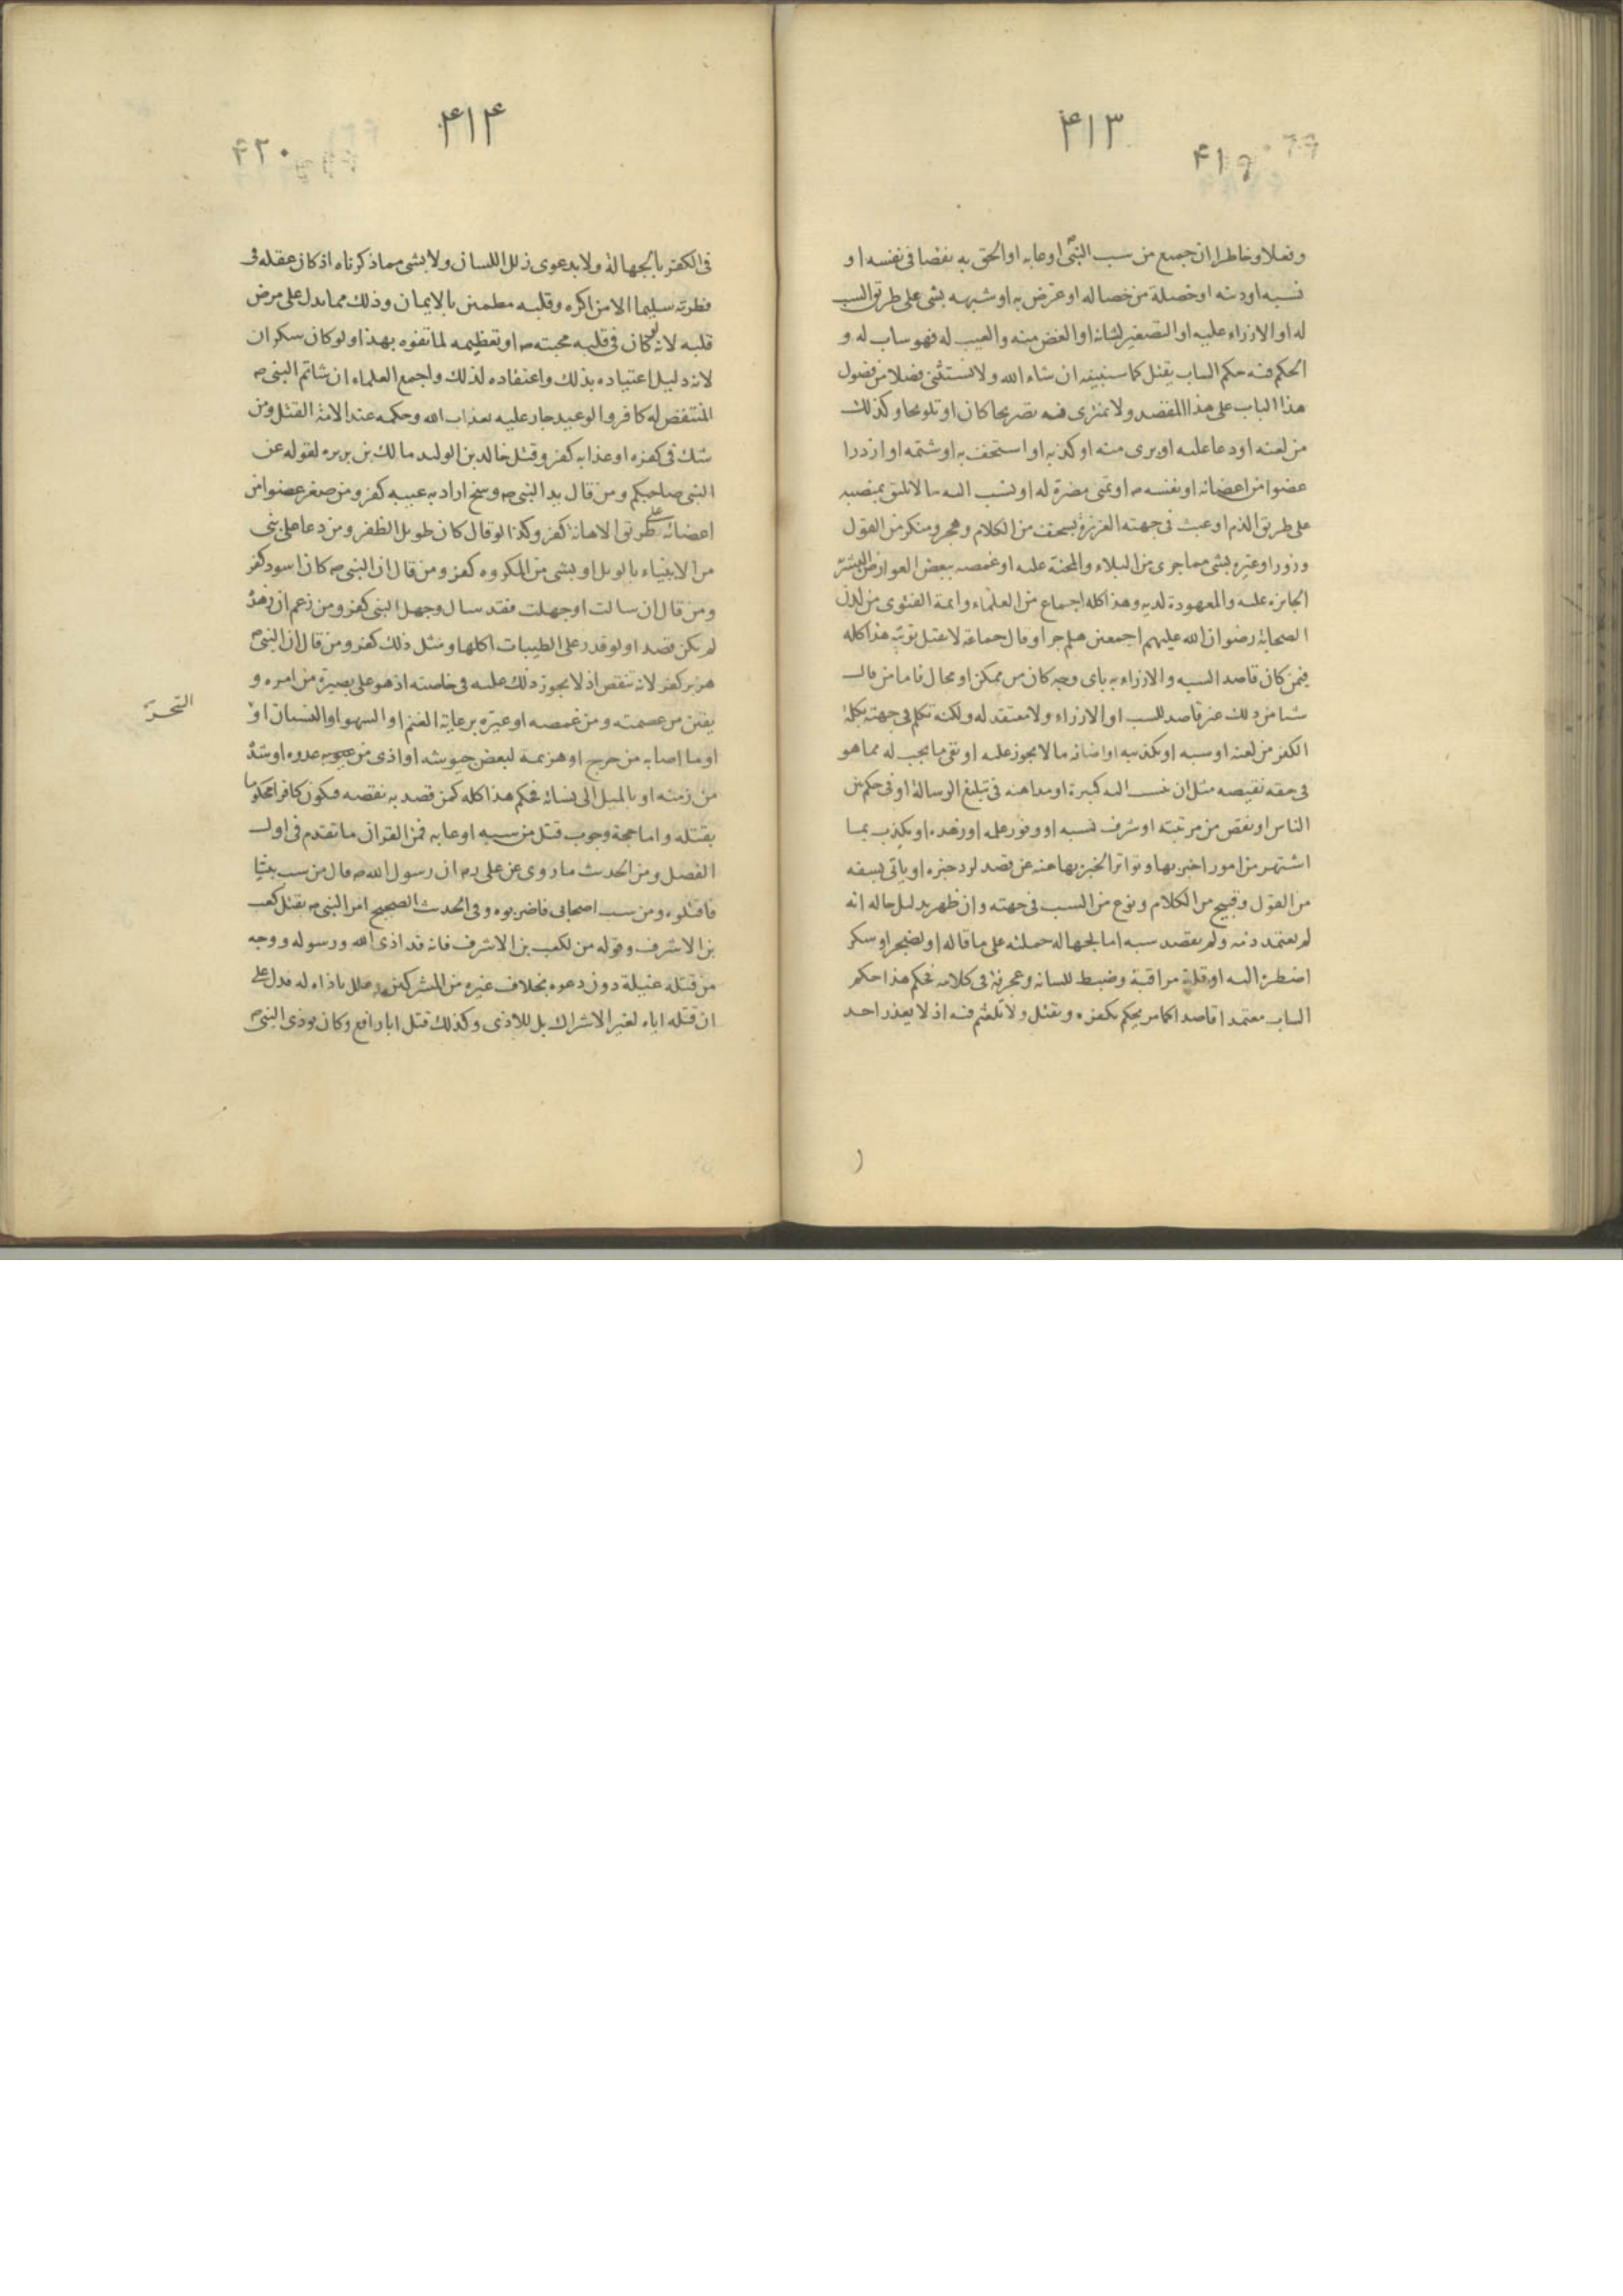 ۴۱۳
۴۱۹
وفعلا وخاطرا ان جميع من سب النبى او عابه او الحق به نقصا فى نفسه او
نسبه او دينه او خصلة من خصاله او عرض به او شبهه بشى على طريق السب
له او الازراء عليه او التصغير لشانه او الغض منه والعيب له فهو ساب له و
الحكم فيه حكم الساب يقتل كما سنبينه ان شاء الله ولا نستثنى فصلا من فصول
هذا الباب على هذا المقصد ولا نمترى فيه تصريحا كان او تلويحا وكذلك
من لعنه او دعا عليه او برى منه او كذبه او استخف به او شتمه او ازدرا
عضوا من اعضائه او نفسه ص او تمنى مضرة له او نسب اليه ما لا يليق بمنصبه
على طريق الذم او عبث فى جهته العزيزة بسخف من الكلام وهجر ومنكر من القول
وزور او عيره بشى مما جرى من البلاء والمحنة عليه او غمصه ببعض العوارض البشرية
الجائزه عليه والمعهودة لديه وهذا كله اجماع من العلماء وائمة الفتوى من لدن
الصحابة رضوان الله عليهم اجمعين هلم جرا وقال جماعة لا تقبل توبته هذا كله
فيمن كان قاصد السبه والازراء به باى وجه كان من ممكن او محال فاما من قال
شيا من ذلك غير قاصد للسب او الازراء ولا معتقد له ولكنه تكلم فى جهته بكلمة
الكفر من لعنه او سبه او تكذيبه او اضافة ما لا يجوز عليه او نفى ما يجب له مما هو
فى حقه نقيصه مثل ان ينسب اليه كبيرة او مداهنه فى تبليغ الرسالة او فى حكم بين
الناس او نقص من مرتبته او شرف نسبه او وفور علمه او زهده او يكذب بما
اشتهر من امور اخبر بها وتواتر الخبر بها عنه عن قصد لرد خبره او ياتى بسفه
من القول وقبيح من الكلام ونوع من السب فى جهته وان ظهر بدليل حاله انه
لم يعتمد ذمه ولم يقصد سبه اما لجهاله حملته على ما قاله او لضجر او سكر
اضطره اليه او قلة مراقبة وضبط للسانه وعجرفة فى كلامه فحكم هذا حكم
الساب معتمدا قاصدا كما مر يحكم بكفره ويقتل ولا تلعثم فيه اذ لا يعذر احد
۴۱۴
۴۲۰
فى الكفر بالجهالة ولا بدعوى زلل اللسان ولا بشى مما ذكرناه اذ كان عقله فى
فطرته سليما الا من اكره وقلبه مطمئن بالايمان وذلك مما يدل على مرض
قلبه لانه لو كان فى قلبه محبته ص او تعظيمه لما تفوه بهذا ولو كان سكران
لانه دليل اعتياده بذلك واعتقاده لذلك واجمع العلماء ان شاتم النبى ص
المتنقص له كافر والوعيد جار عليه بعذاب الله وحكمه عند الامة القتل ومن
شك فى كفره او عذابه كفر وقتل خالد بن الوليد مالك بن بربره لقوله عن
النبى صاحبكم ومن قال يد النبى ص وسخ اراد به عيبه كفر ومن صغر عضوا من
اعضائه على طريق الاهانة كفر وكذا لو قال كان طويل الظفر ومن دعا على نبى
من الانبياء بالويل او بشى من المكروه كفر ومن قال ان النبى ص كان اسود كفر
ومن قال ان سالت او جهلت فقد سال وجهل النبى كفر ومن زعم ان زهدة
لم يكن قصدا ولو قدر على الطيبات اكلها ومثل ذلك كفر ومن قال ان النبى ص
هزم كفر لانه تنقص اذ لا يجوز ذلك عليه فى خاصته اذ هو على بصيرة من امره و
يقين من عصمته ومن غمصه او عيره برعاية الغنم او السهو او النسيان او
السحر
او ما اصابه من جرح او هزيمة لبعض جيوشه او اذى من عدوه او شدة
من زمنه او بالميل الى نسائه فحكم هذا كله كمن قصد به نقصه فيكون كافرا محكوما
بقتله واما حجة وجوب قتل من سبه او عابه فمن القران ما تقدم فى اول
الفصل ومن الحديث ما روى عن على رض ان رسول الله ص قال من سب نبيا
فاقتلوه ومن سب اصحابى فاضربوه وفى الحديث الصحيح امر النبى ص بقتل كعب
بن الاشرف وقوله من لكعب بن الاشرف فانه قد اذى الله ورسوله ووجه
من قتله غيلة دون دعوه بخلاف غيره من المشركين وعلل باذاه له فدل على
ان قتله اياه لغير الاشراك بل للاذى وكذلك قتل ابا رافع وكان يوذى النبى ص